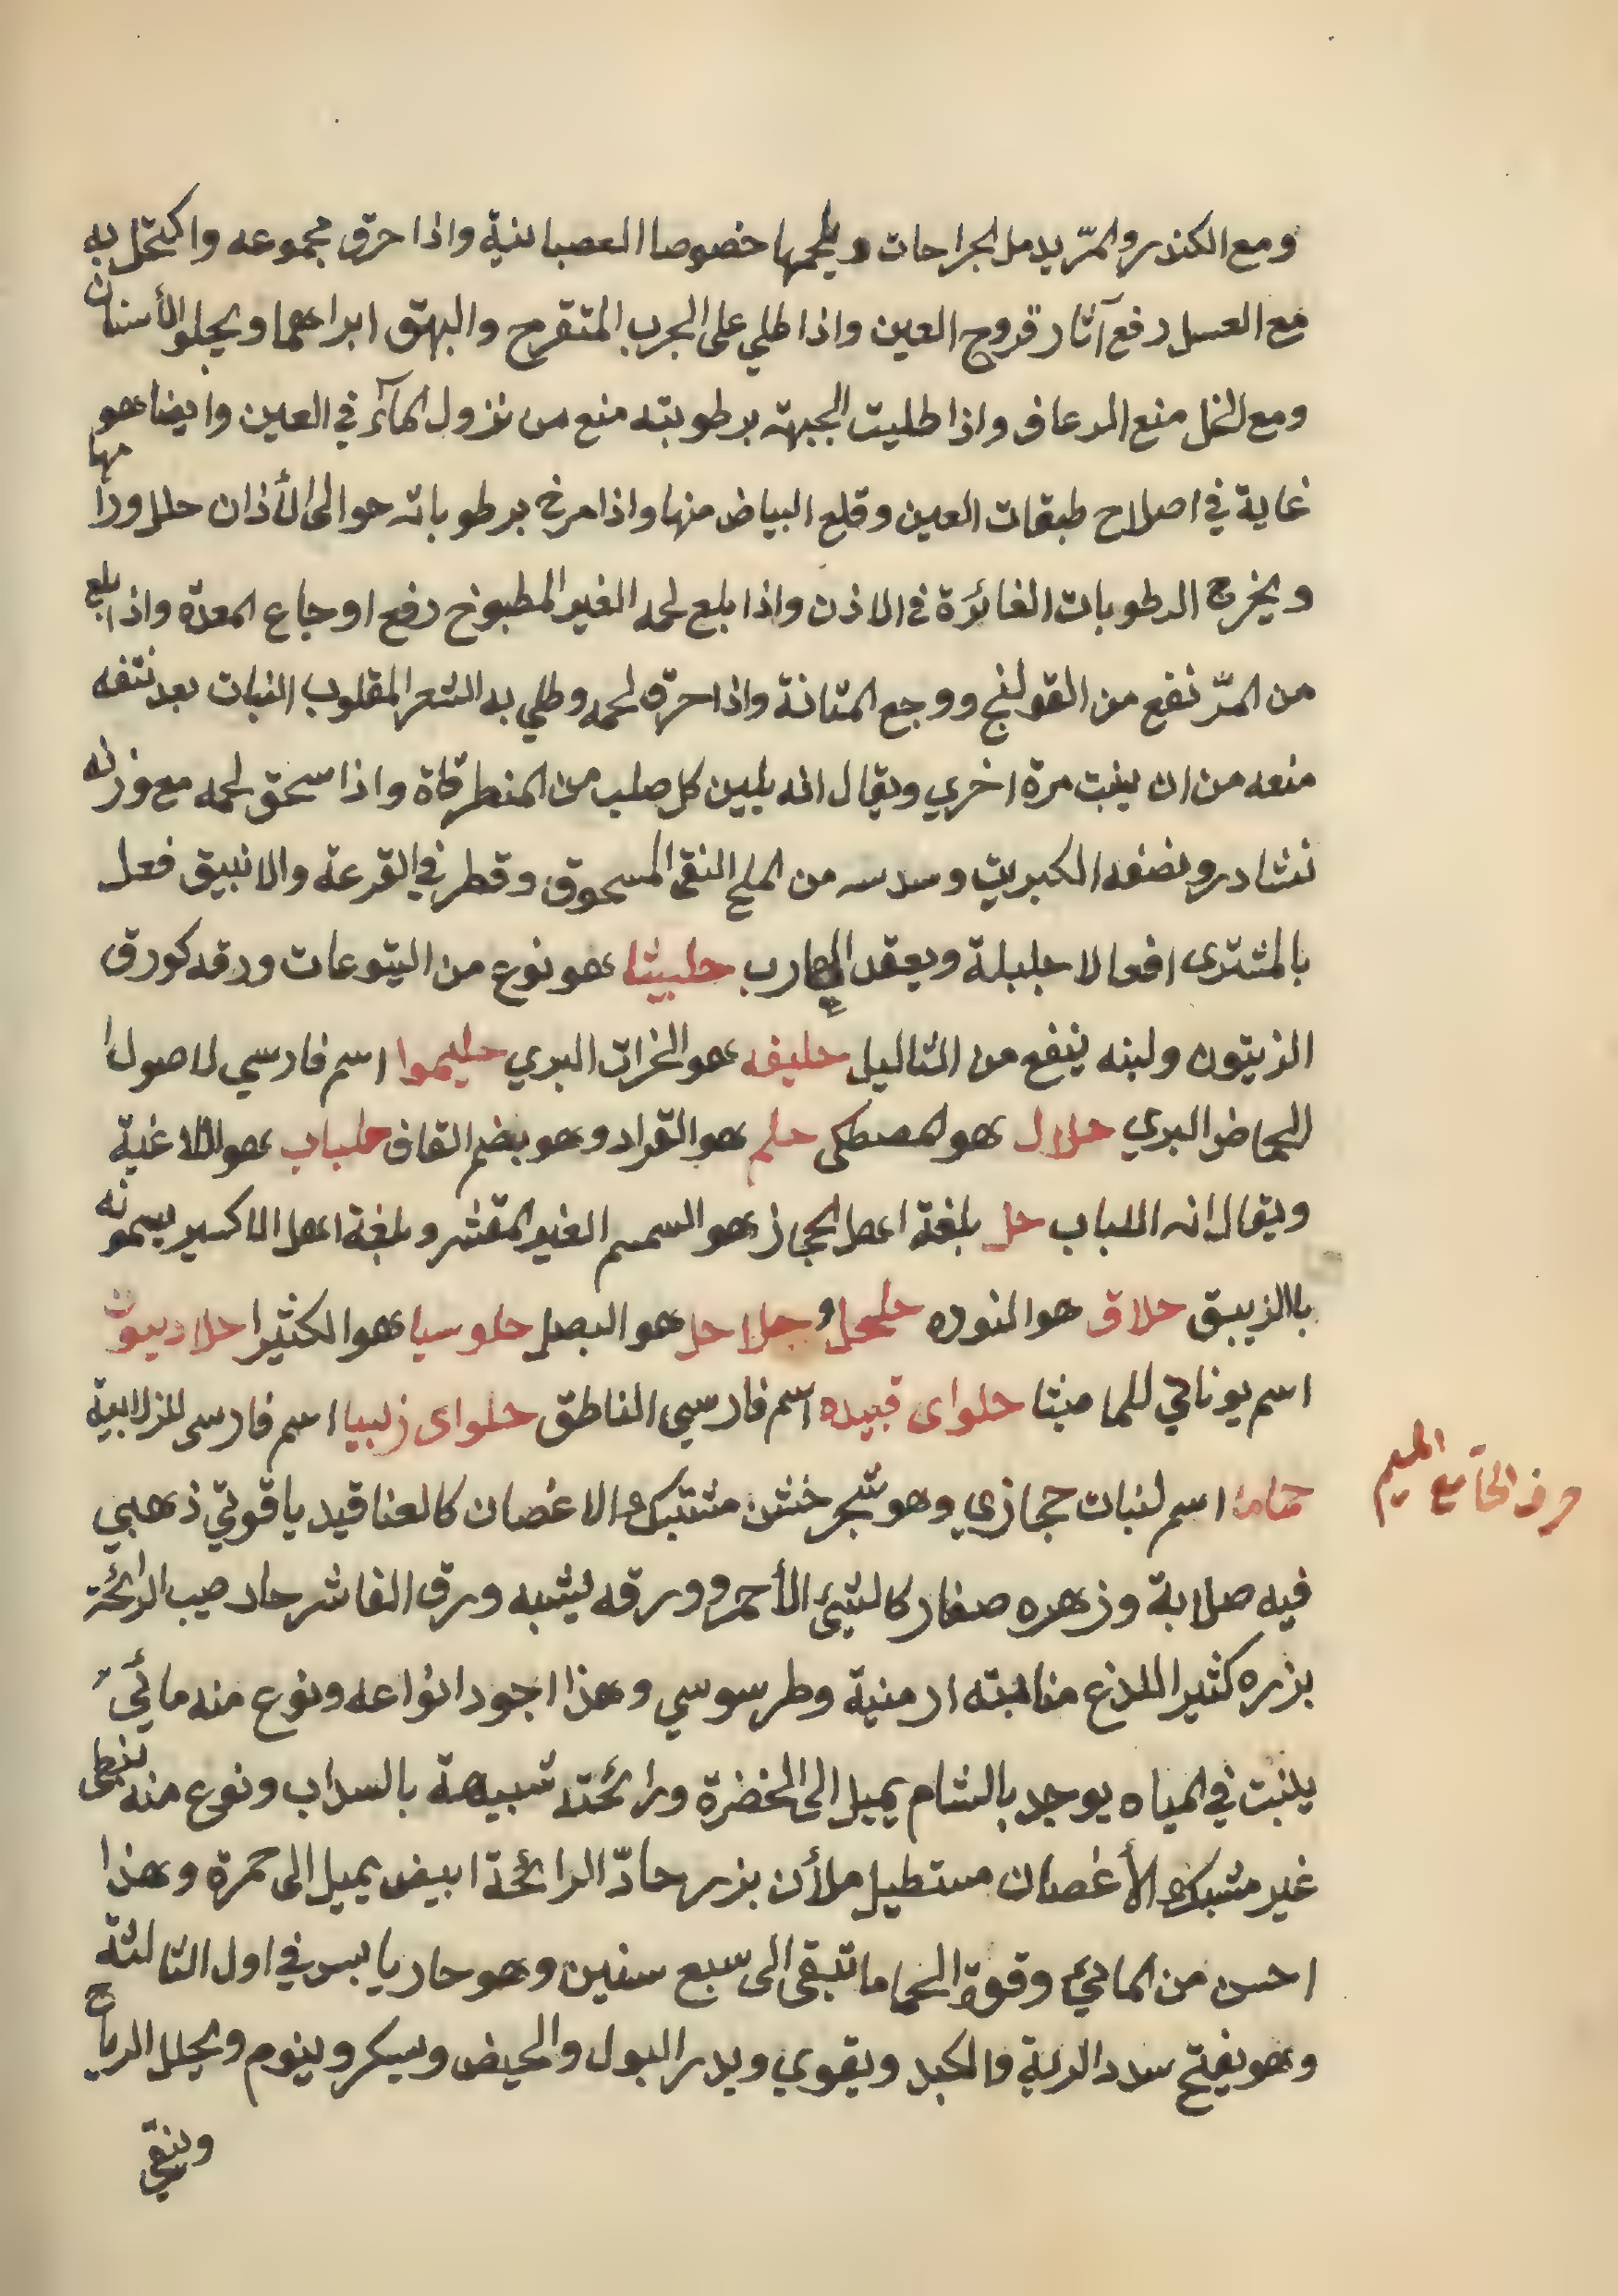 ومع الكندر والمرّ يدمل الجراحات ويلحمها خصوصا العصبانية واذا حرق مجموعه واكتحل به
مع العسل رفع آثار قروح العين واذا طلي على الجرب المتقرح والبهق ابراهما ويجلو الأسنان
ومع الخل منع الرعاف واذا طليت الجبهة برطوبته منع من نزول المآء في العين وايضا هو
غاية في اصلاح طبقات العين وقلع البياض منها واذا مرخ برطوباته حوالى الأذان حلل ورامها
ويخرج الرطوبات الغائرة في الاذن واذا بلع لحمه الغير المطبوخ رفع اوجاع المعدة واذا بلع
من المرّ نفع من القولنج ووجع المثانة واذا حرق لحمه وطلي به الشعر المقلوب النبات بعد نتفه
منعه من ان ينبت مرة اخري ويقال انه يلين كل صلب من المنطرقاة واذا سحق لحمه مع وزنه
نشادر ونصفه الكبريت وسدسه من الملح النقى المسحوق وقطر في القرعة والانبيق فعل
بالمشترى افعالا جليلة ويعقد الهارب حلبيثا هو نوع من اليتوعات ورقه كورق
الزيتون ولبنه ينفع من الثاليل حليفه هو الخراث البري حليموا اسم فارسي لاصول
الحماض البري حلال هو المصطكى حلم هو القراد وهو بضم القاف حلباب هو اللاغية
ويقال انه اللباب حل بلغة اهل الحجاز هو السمسم الغير المقشر وبلغة اهل الاكسير يسمونه
باالزيبق حلاق هو النوره حلحل وحلاحل هو البصل حلوسيا هو الكثيرا حلاديوت
اسم يوناني للمامنثا حلواى قبيده اسم فارسي الناطق حلواى زليبا اسم فارسى للزلابية
حرف الحآ مع الميم
حماما اسم لنبات حجازي وهو شجر خشن مشتبك الاغصان كالعناقيد ياقوتي ذهبي
فيه صلابة وزهره صغار كالشيء الأحمر وورقه يشبه ورق الفاشر حاد صيب الرائحة
بزره كثير اللدغ منابته ارمنية وطرسوسي وهذا اجود انواعه ونوع منه مائي
ينبت في المياه يوجد بالشام يميل الى الخضرة ورائحته شبيهة بالسداب ونوع منه نبطى
غير مشبك الأغصان مستطيل ملأن بزر حادّ الرائحة ابيض يميل الى حمرة وهذا
احسن من المائي وقوة الحماما تبقى الى سبع سنين وهو حار يابس في اول الثالثة
وهو يفتح سدد الرية والكبد ويقوي ويدر البول والحيض ويسكر وينوم ويحلل الرياح
وينقي